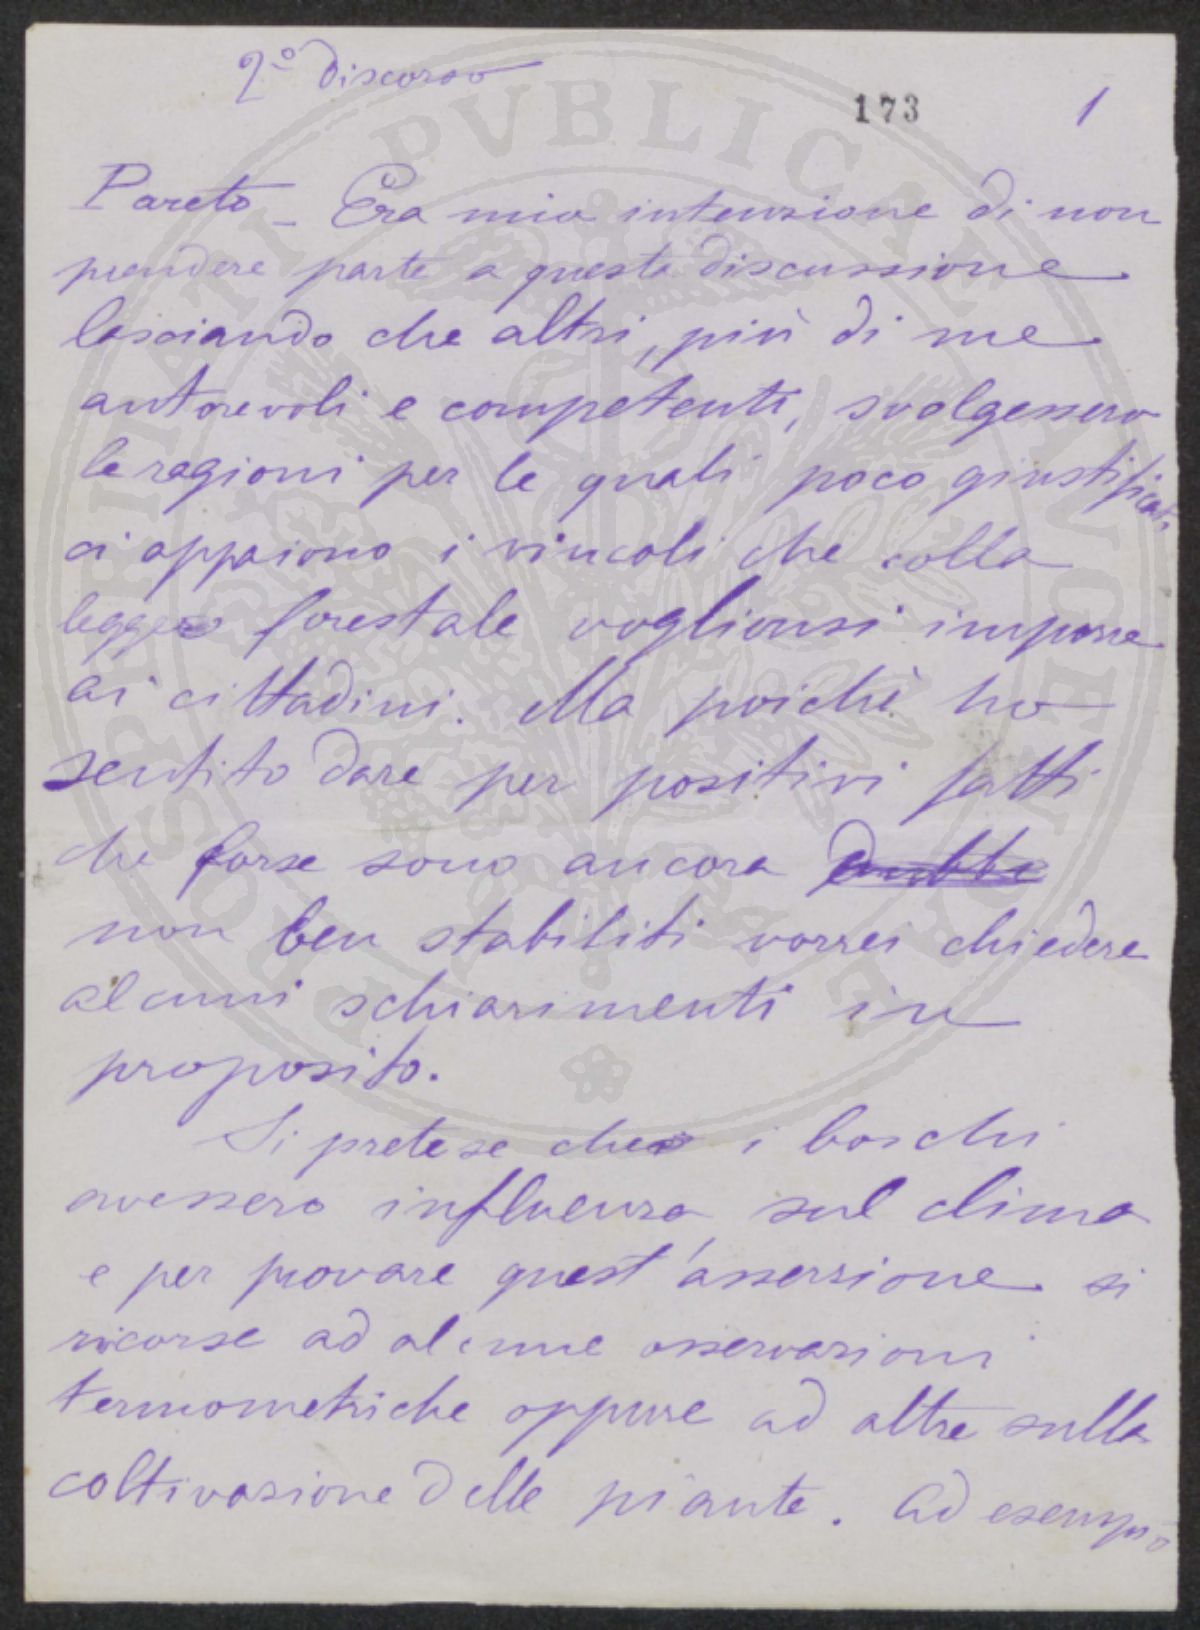 2º discorso
173
1
Pareto – Era mia intenzione di non
prendere parte a questa discussione
lasciando che altri, più di me
autorevoli e competenti, svolgessero
le ragioni per le quali poco giustificati
ci appaiono i vincoli che colla
legge forestale voglionsi imporre
ai cittadini. Ma poichè ho
sentito dare per positivi fatti
che forse sono ancora
non ben stabiliti vorrei chiedere
alcuni schiarimenti in
proposito.
Si pretese che i boschi
avessero influenza sul clima
e per provare quest'asserzione si
ricorse ad alcune osservazioni
termometriche oppure ad altre sulla
coltivazione delle piante. Ad esempio
PROSPERITATI PVBLICAE AVGENDAE